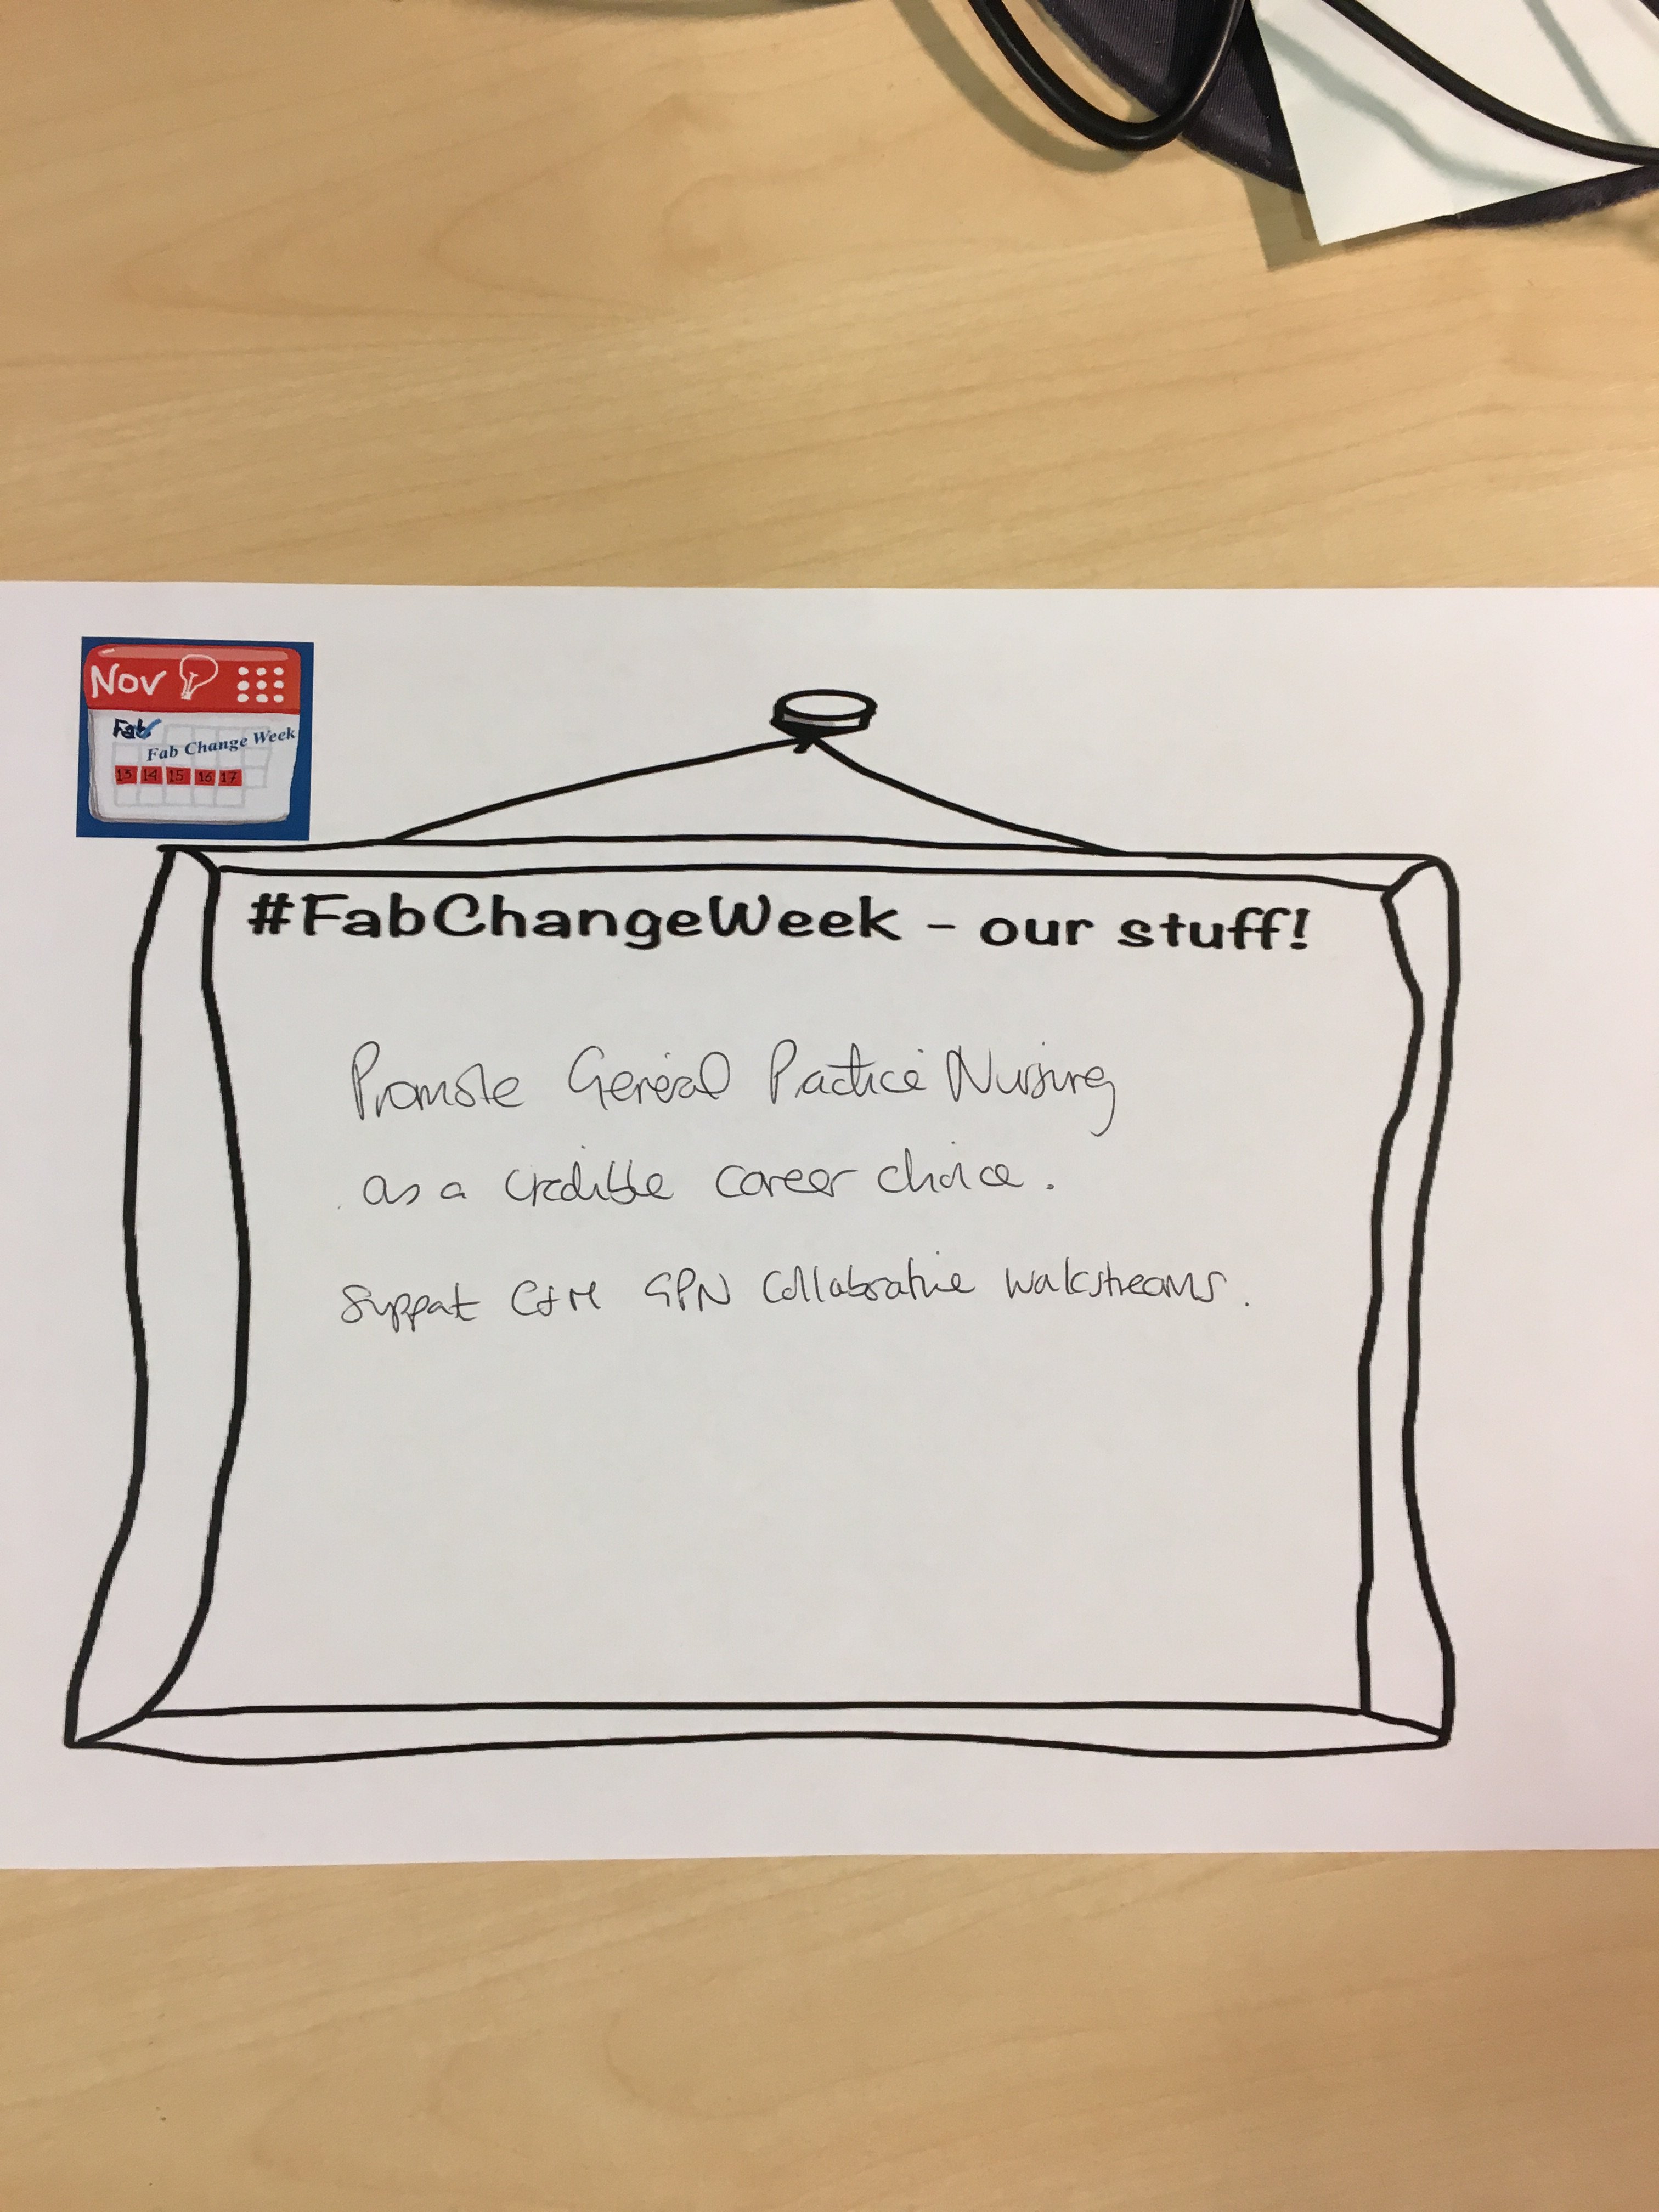 Nov
Fab
Fab Change Week
13 14 15 16 17
#FabChangeWeek - our stuff!
Promote General Practice Nursing
as a credible career choice.
Support C&M GPN Collaborative workstreams.